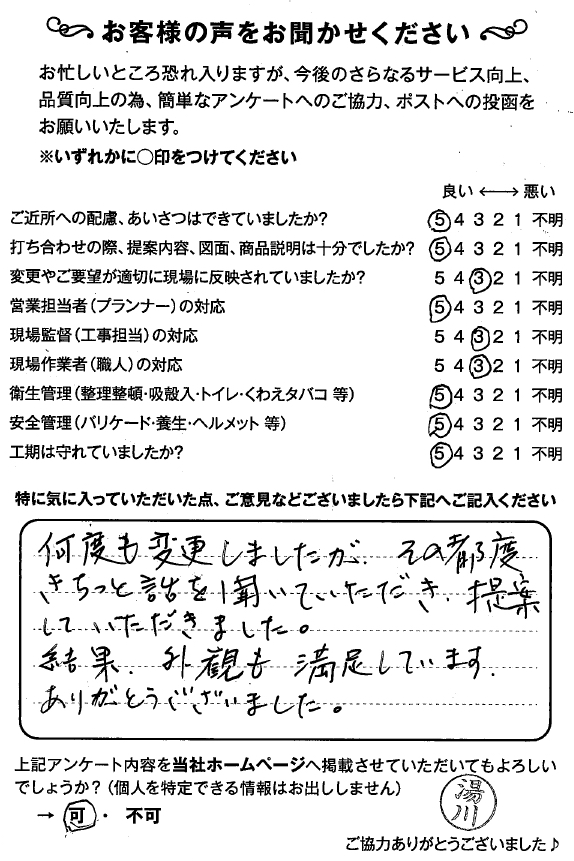 お客様の声をお聞かせください
お忙しいところ恐れ入りますが、今後のさらなるサービス向上、
品質向上の為、簡単なアンケートへのご協力、ポストへの投函を
お願いいたします。
※いずれかに○印をつけてください
良い ⟷ 悪い
ご近所への配慮、あいさつはできていましたか? 5 4 3 2 1 不明
打ち合わせの際、提案内容、図面、商品説明は十分でしたか? 5 4 3 2 1 不明
変更やご要望が適切に現場に反映されていましたか? 5 4 3 2 1 不明
営業担当者(プランナー)の対応 5 4 3 2 1 不明
現場監督(工事担当)の対応 5 4 3 2 1 不明
現場作業者(職人)の対応 5 4 3 2 1 不明
衛生管理(整理整頓・吸殻入・トイレ・くわえタバコ 等) 5 4 3 2 1 不明
安全管理(バリケード・養生・ヘルメット 等) 5 4 3 2 1 不明
工期は守れていましたか? 5 4 3 2 1 不明
特に気に入っていただいた点、ご意見などございましたら下記へご記入ください
何度も変更しましたが、その都度
きちっと話を聞いていただき、提案
していただきました。
結果、外観も満足しています。
ありがとうございました。
上記アンケート内容を当社ホームページへ掲載させていただいてもよろしい
でしょうか?(個人を特定できる情報はお出ししません)
→ 可 ・ 不可
湯川
ご協力ありがとうございました♪